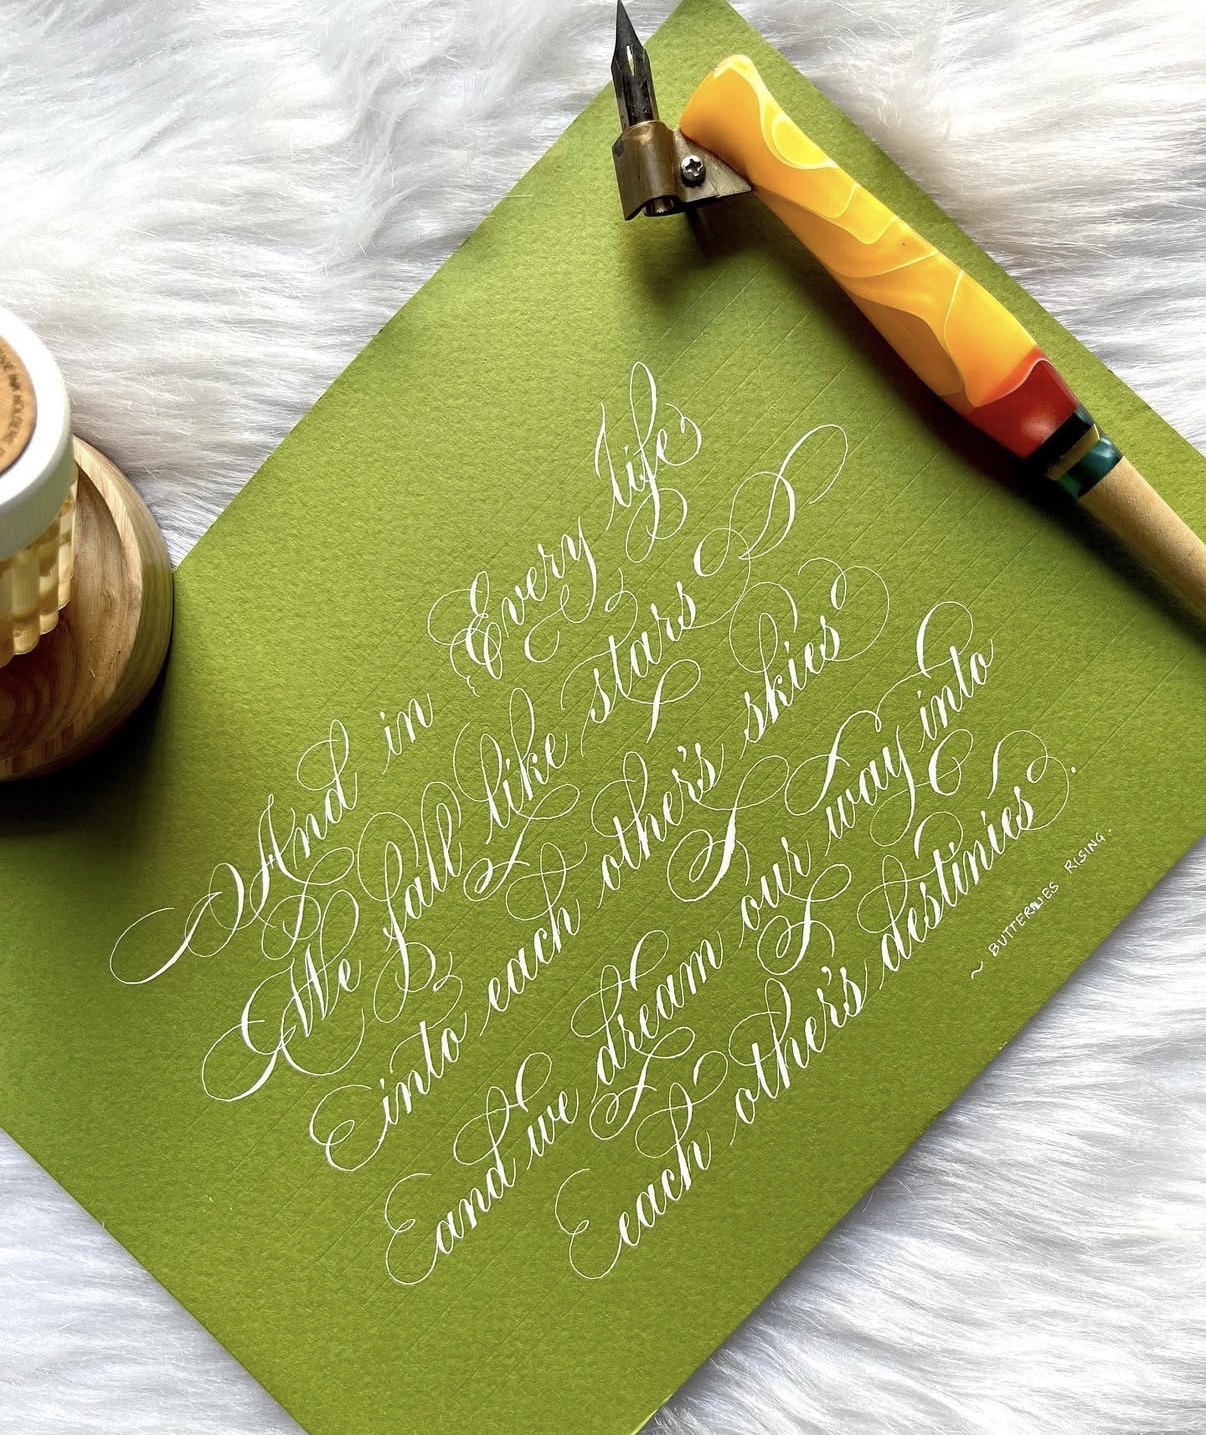 And in Every life
We fall like stars
into each other's skies
and we dream our way into
each other's destinies.
~ BUTTERFLIES RISING.